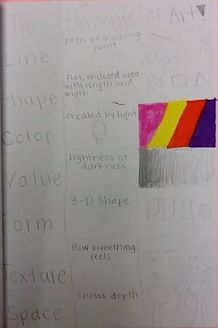 The Elements of Art
Line
Path of a moving
point
Shape
flat, enclosed area
with length and
width
Color
created by light
Value
lightness or
darkness
Form
3-D Shape
Texture
How something
feels
Space
Shows depth